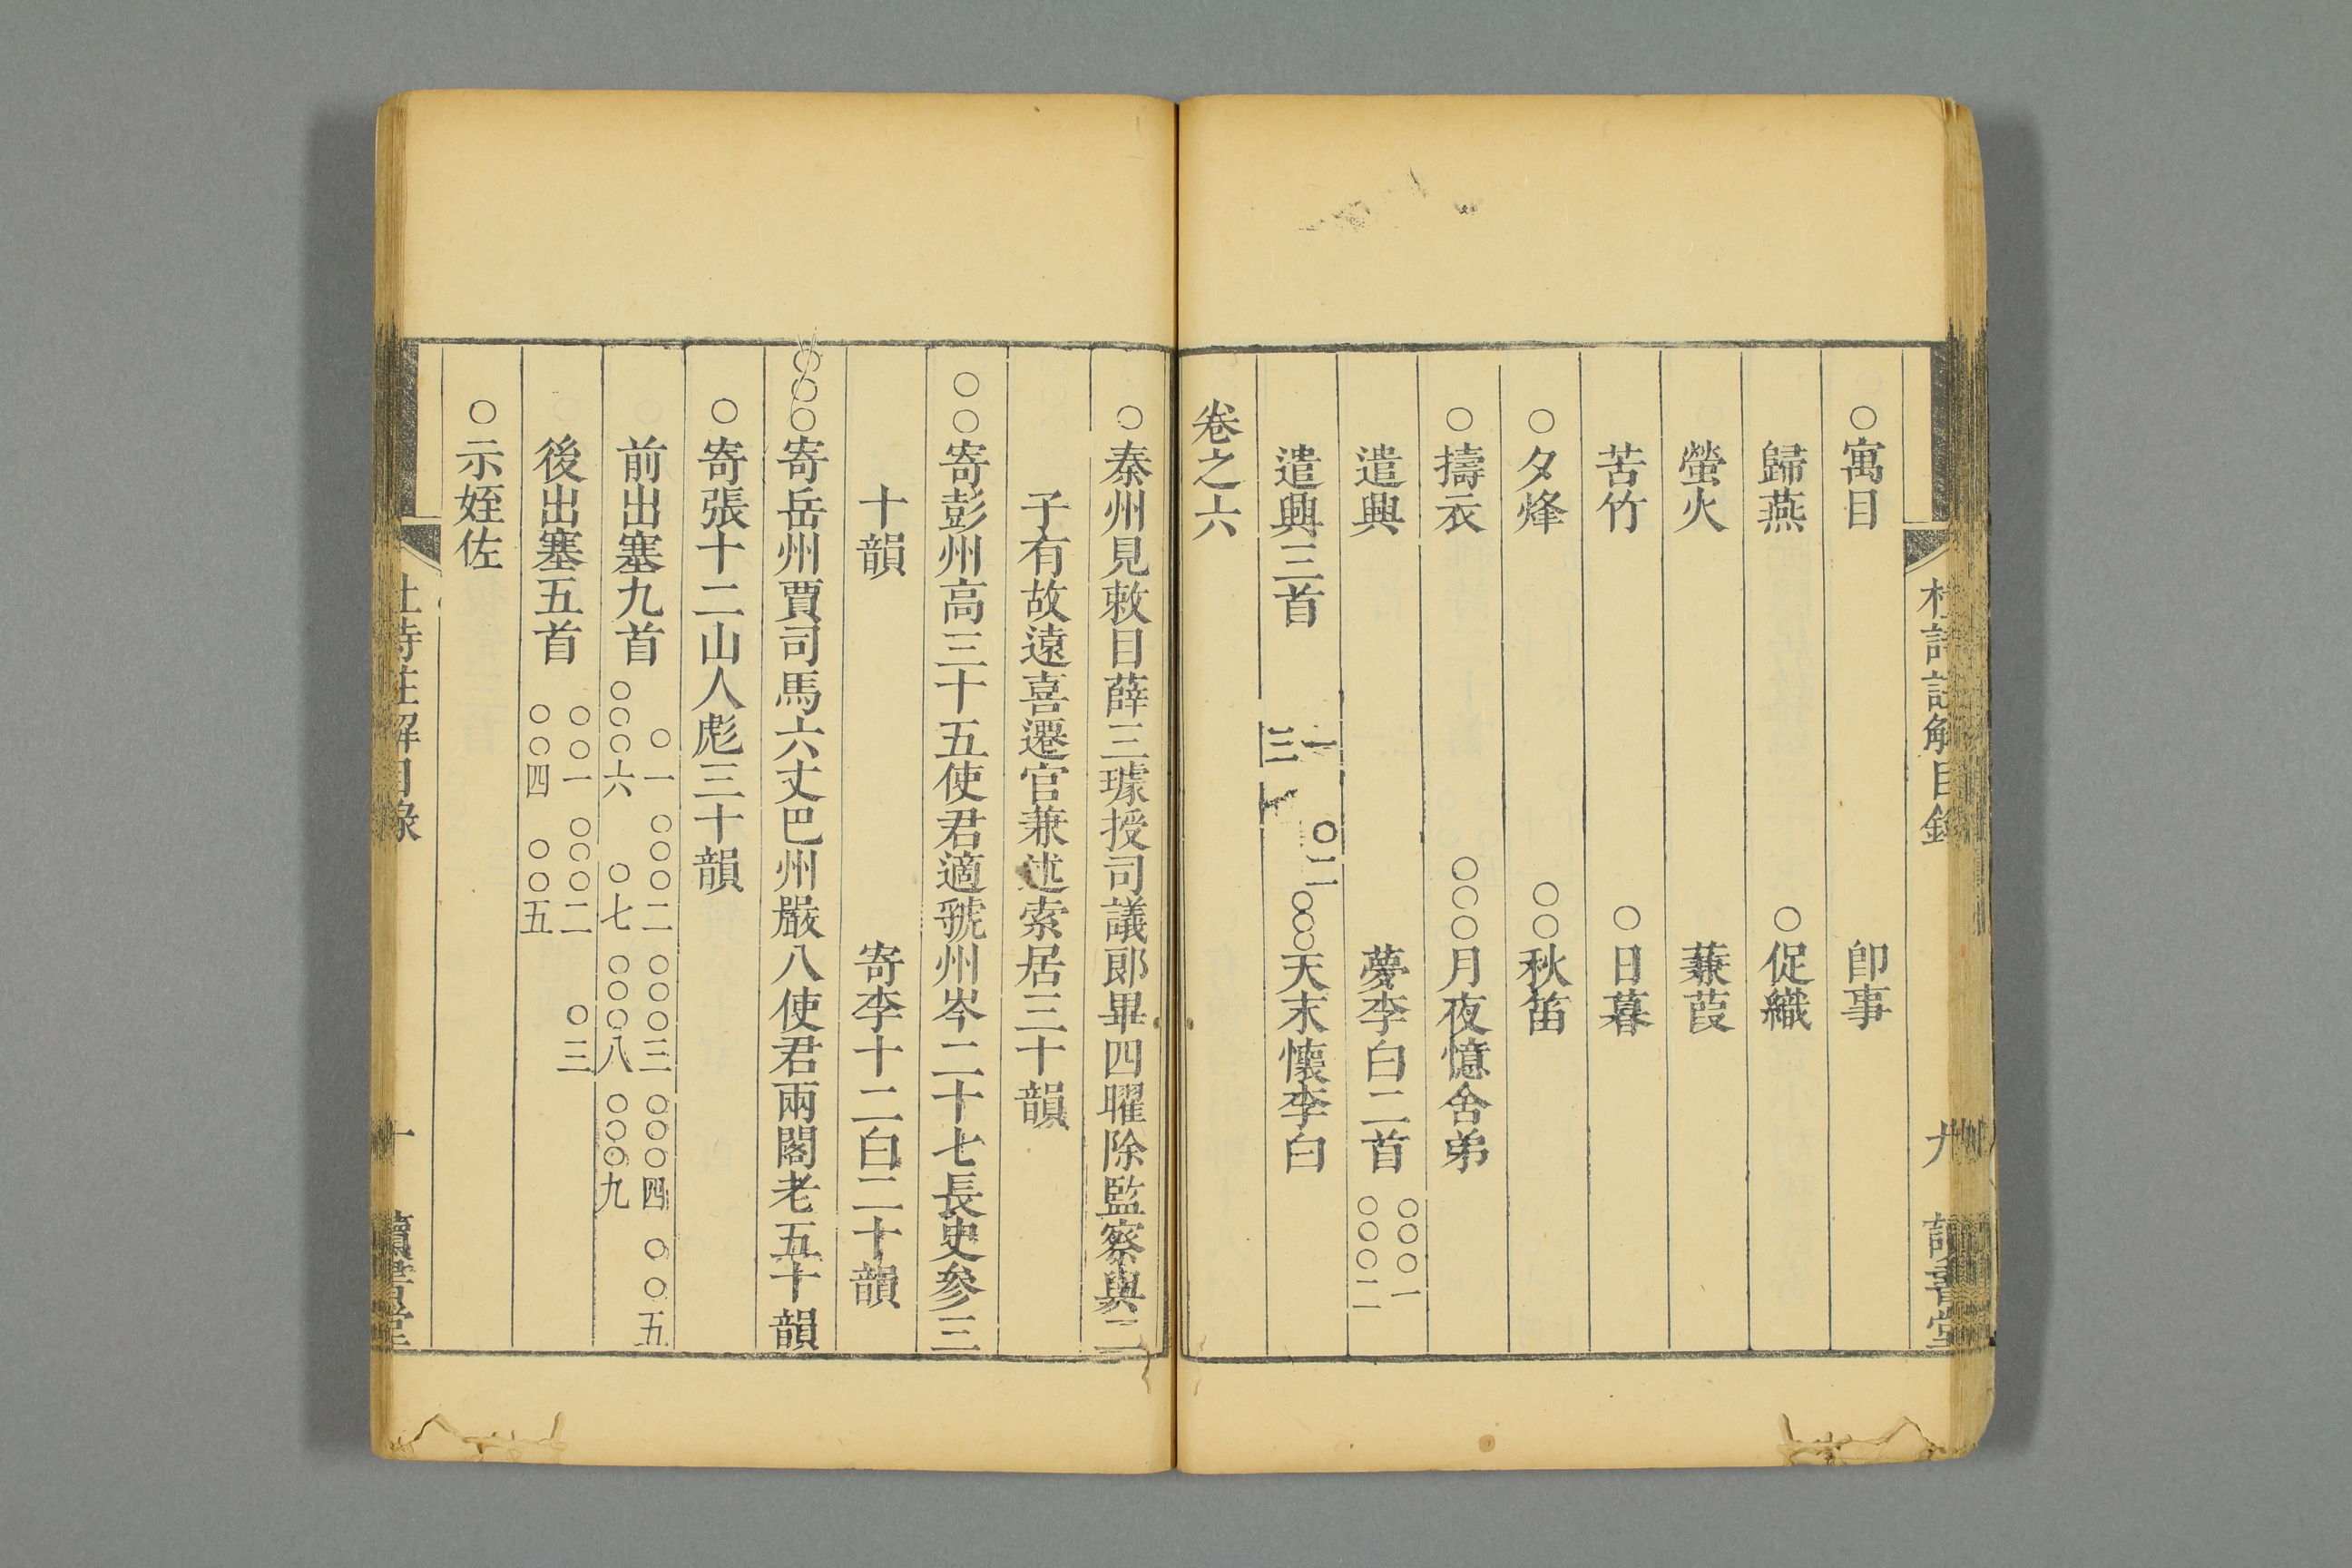 杜詩註解目錄 九 讀書堂
○寓目 卽事
歸燕 ○促織
螢火 蒹葭
苦竹 ○日暮
○夕烽 ○○秋笛
○擣衣 ○○○月夜憶舍弟
遣興 夢李白二首 ○○○一 ○○○二
遣興三首 一 ○二 三 ○○○天末懷李白
卷之六
○秦州見敕目薛三璩授司議郎畢四曜除監察與二
子有故遠喜遷官兼述索居三十韻
○○寄彭州高三十五使君適虢州岑二十七長史參三
十韻 寄李十二白二十韻
○○○寄岳州賈司馬六丈巴州嚴八使君兩閣老五十韻
○寄張十二山人彪三十韻
前出塞九首 ○一 ○○○二 ○○○三 ○○○四 ○○五 ○○○六 ○七 ○○○八 ○○○九
後出塞五首 ○○一 ○○○二 ○三 ○○四 ○○五
○示姪佐
杜詩註解目錄 十 讀書堂